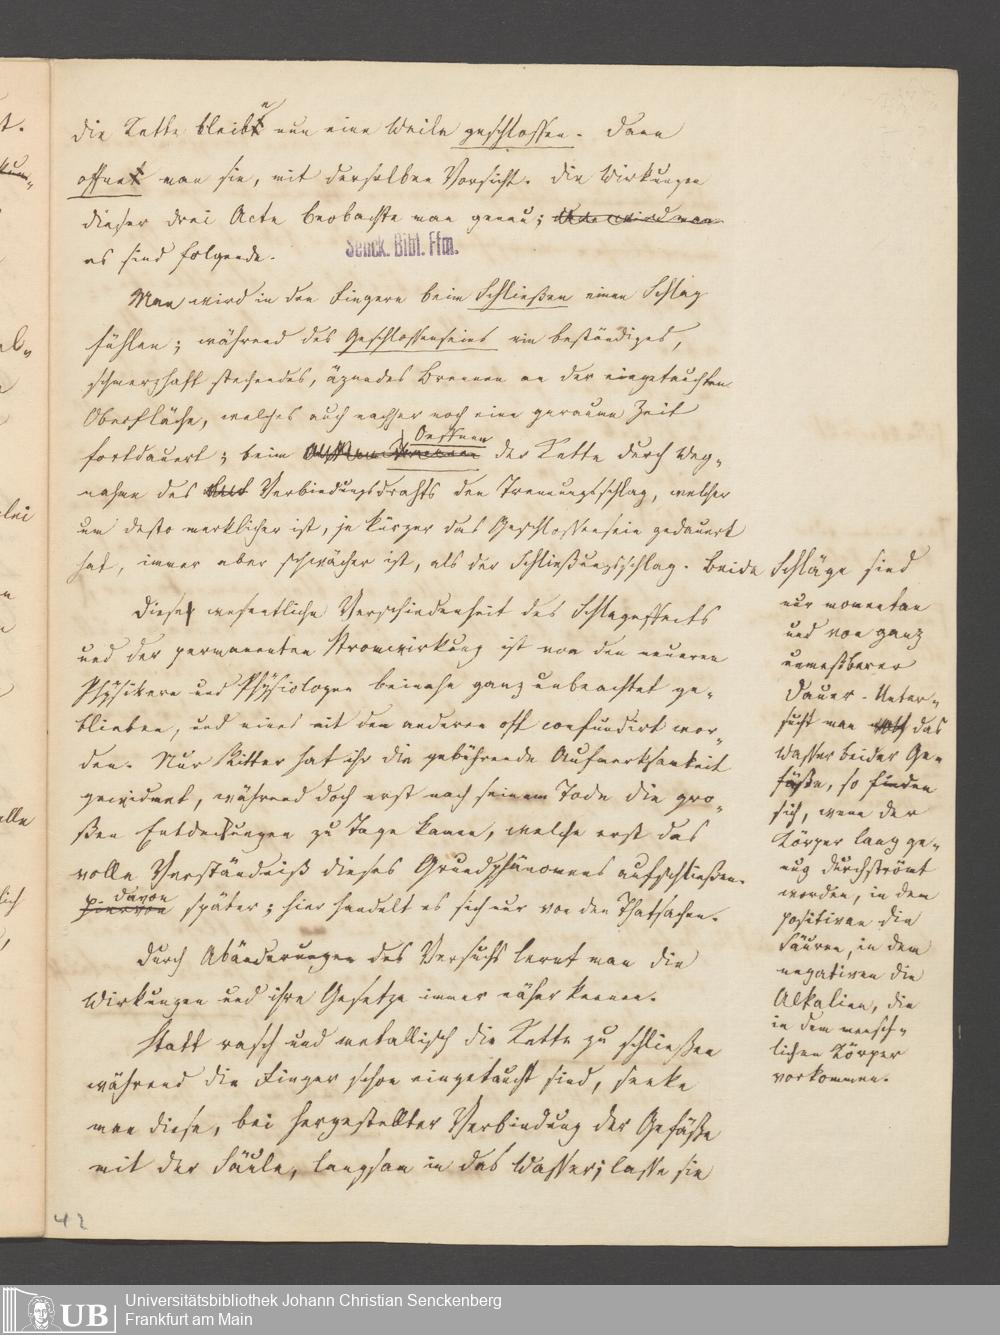 die Kette bleibe nun eine Weile geschlossen. Dann
öffne man sie, mit derselben Vorsicht. Die Wirkungen
dieser drei Acte beobachte man genau;
es sind folgende.
Senck. Bibl. Ffm.
Man wird in den Fingern beim Schließen einen Schlag
fühlen; während des Geschlossenseins ein beständiges,
schmerzhaft stechendes, äzendes Brennen an der eingetauchten
Oberfläche, welches auch nachher noch eine geraume Zeit
fortdauert; beim Oeffnen der Kette durch Weg-
nahme des Verbindungsdrahts den Trennungsschlag, welcher
um desto merklicher ist, je kürzer das Geschlossensein gedauert
hat, immer aber schwächer ist, als der Schließungsschlag. Beide Schläge sind
nur momentan
und von ganz
unmeßbarer
Dauer. Unter-
sucht man das
Wasser beider Ge-
fäße, so finden
sich, wenn der
Körper lang ge-
nug durchströmt
worden, in dem
positiven die
Säuren, in dem
negativen die
Alkalien, die
in dem mensch-
lichen Körper
vorkommen.
Diese wesentliche Verschiedenheit des Schlageffects
und der permanenten Stromwirkung ist von den neueren
Physikern und Physiologen beinahe ganz unbeachtet ge-
blieben, und eines mit dem anderen oft confundirt wor-
den. Nur Ritter hat ihr die gebührende Aufmerksamkeit
gewidmet, während doch erst nach seinem Tode die gro-
ßen Entdeckungen zu Tage kamen, welche erst das
volle Verständniß dieses Grundphänomens aufschließen.
davon später; hier handelt es sich nur von den Thatsachen.
Durch Abänderungen des Versuchs lernt man die
Wirkungen und ihre Gesetze immer näher kennen.
Statt rasch und metallisch die Kette zu schließen
während die Finger schon eingetaucht sind, senke
man diese, bei hergestellter Verbindung der Gefäße
mit der Säule, langsam in das Wasser; lasse sie
42
UB
Universitätsbibliothek Johann Christian Senckenberg
Frankfurt am Main